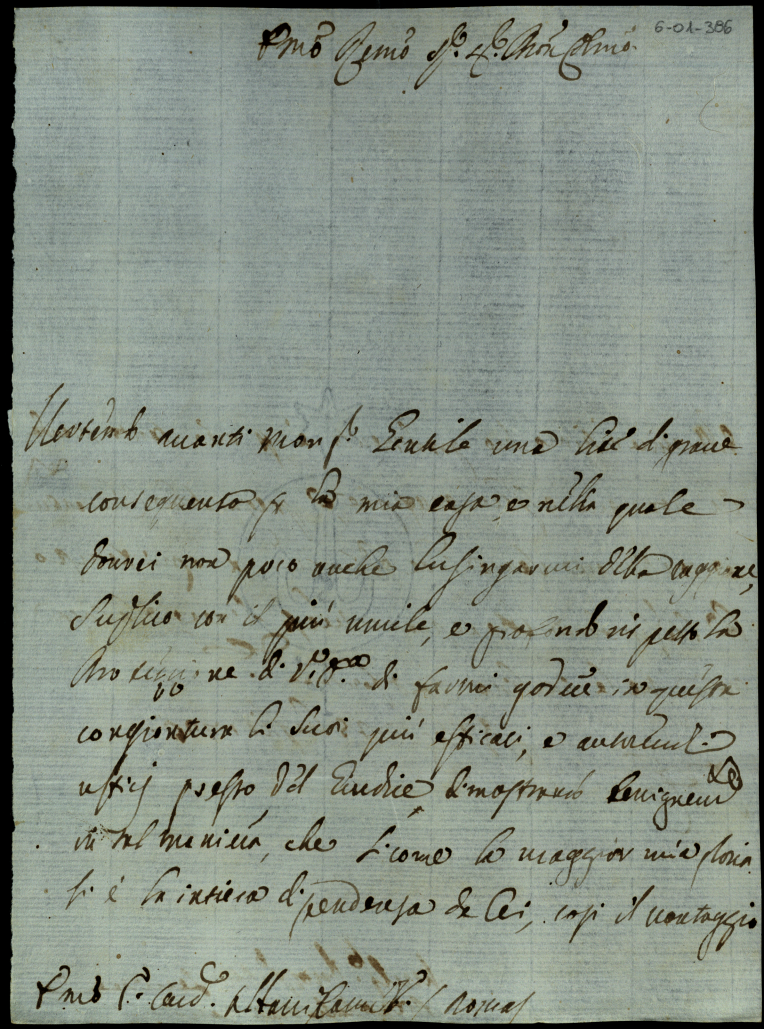 6-01-386
Emo Remo Sr. Sr. Pron Colmo
Vertendo avanti Monsr. Gentile una lite di grave
conseguenza p la mia casa, e nella quale
dovrei non poco anche lusingarmi della raggione,
Suplico con il più umile, e profondo rispetto la
Protezzione di V. Eza di farmi godere in questa
congiontura li Suoi più efficaci, e autorevoli
ufficj presso del Giudice, dimostrando benignemte
in tal maniera, che sicome la maggior mia gloria
si è la intiera dipendenza da Lei, cosi il vantaggio
Emo S. Card. Albani / Roma /